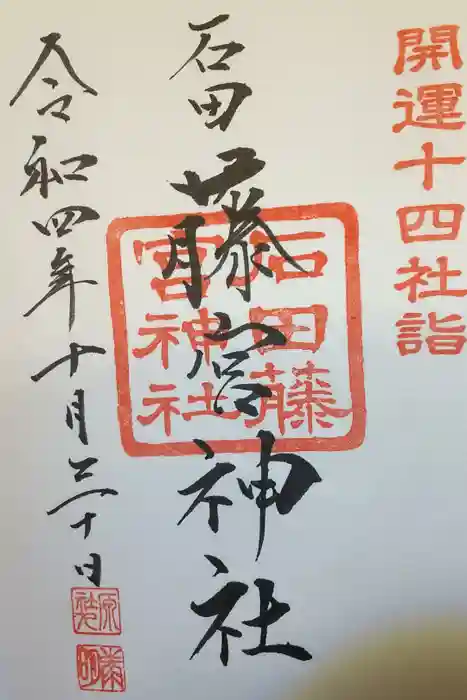 開運十四社詣
石田藤宮神社
石田藤
宮神社
令和四年十月三十日